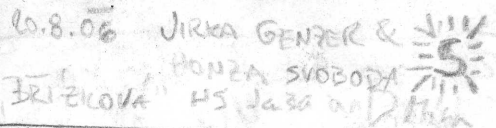 20.8.06 JIRKA GENZER & S
HONZA SVOBODA
BŘÍZKOVÁ HS Jaša